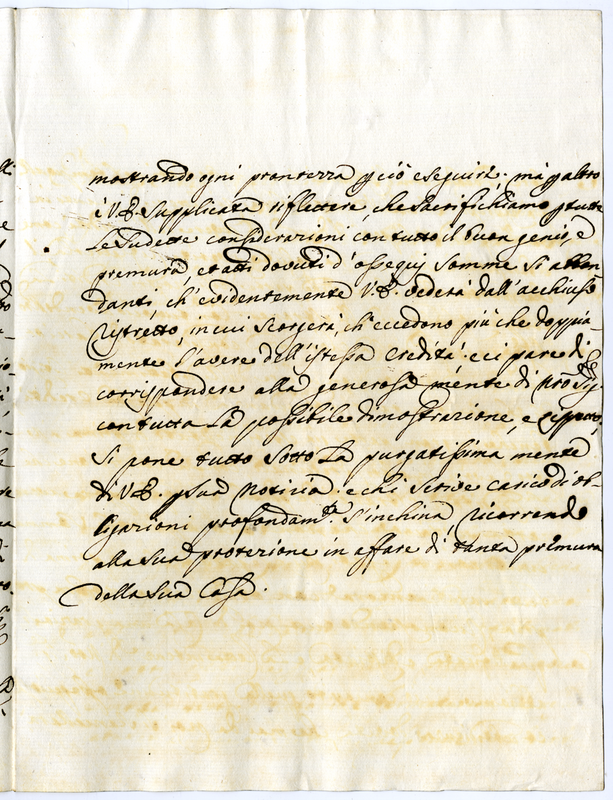 mostrando ogni prontezza p ciò eseguire. mà p altro
è V.E. supplicata riflettere, che sacrifichiamo p tutte
le sudette considerazioni con tutto il buon genio, e
premura et atti dovuti d'ossequij somme sì abbon
danti ch'evidentemente V.E. vederà dall'acchiuso
Ristretto, in cui scorgerà, ch'eccedono più che doppia-
mente l'avere dell'istessa eredità. e ci pare di
corrispondere alla generosa mente di
con tutta la possibile dimostrazione, e
si pone tutto sotto la purgatissima mente
di V.E. p sua notizia. e chi scrive carico di ob-
ligazioni profondam.te s'inchina, ricorrendo
alla sua protezione in affare di tanta premura
della sua Casa.